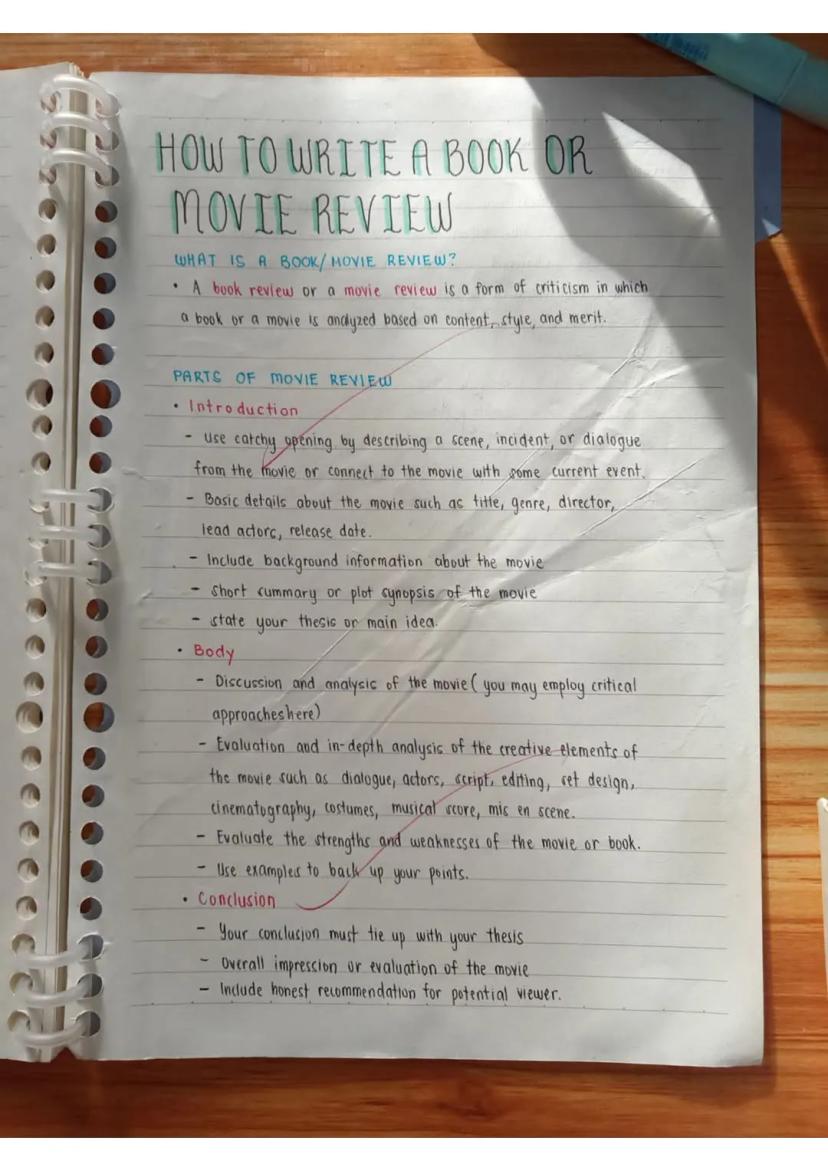 HOW TO WRITE A BOOK OR
MOVIE REVIEW
WHAT IS A BOOK/MOVIE REVIEW?
• A book review or a movie review is a form of criticism in which
a book or a movie is analyzed based on content, style, and merit.
PARTS OF MOVIE REVIEW
• Introduction
- Use catchy opening by describing a scene, incident, or dialogue
from the movie or connect to the movie with some current event.
- Basic details about the movie such as title, genre, director,
lead actors, release date.
- Include background information about the movie
- Short summary or plot synopsis of the movie
- state your thesis or main idea.
• Body
- Discussion and analysis of the movie ( you may employ critical
approaches here)
- Evaluation and in-depth analysis of the creative elements of
the movie such as dialogue, actors, script, editing, set design,
cinematography, costumes, musical score, mis en scene.
- Evaluate the strengths and weaknesses of the movie or book.
- Use examples to back up your points.
• Conclusion
- Your conclusion must tie up with your thesis
- Overall impression or evaluation of the movie
- Include honest recommendation for potential viewer.